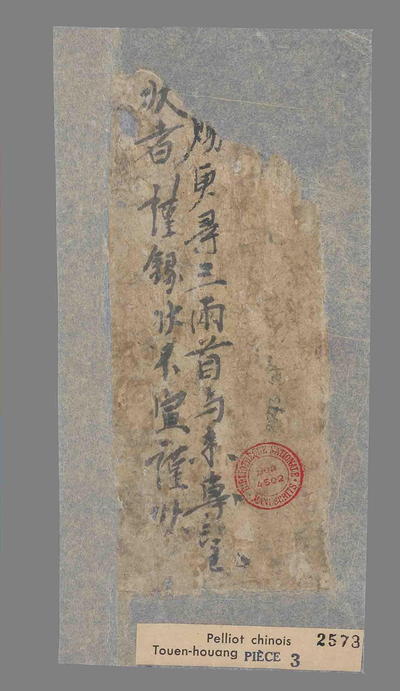 更尋三兩首与来專
状者謹録状不宣謹状
BIBLIOTHÈQUE NATIONALE
DON
4502
MANUSCRITS
Pelliot chinois 2573
Touen-houang PIÈCE 3